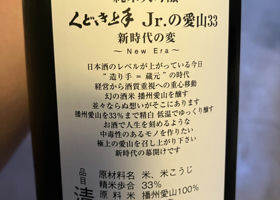 くどき上手 Jr.の愛山33
新時代の変
～ New Era ～
日本酒のレベルが上がっている今日
“造り手 = 蔵元” の時代
経営から酒質重視への重心移動
幻の酒米 播州愛山を醸す
並々ならぬ想いがそこにあります
播州愛山を33%まで精白 低温でゆっくり醸す
お酒で人生を刻めるような
中毒性のあるモノを作りたい
極上の愛山を召し上がり下さい
新時代の幕開けです
原材料名 米、米こうじ
精米歩合 33%
原料米 播州愛山100%
品目 清